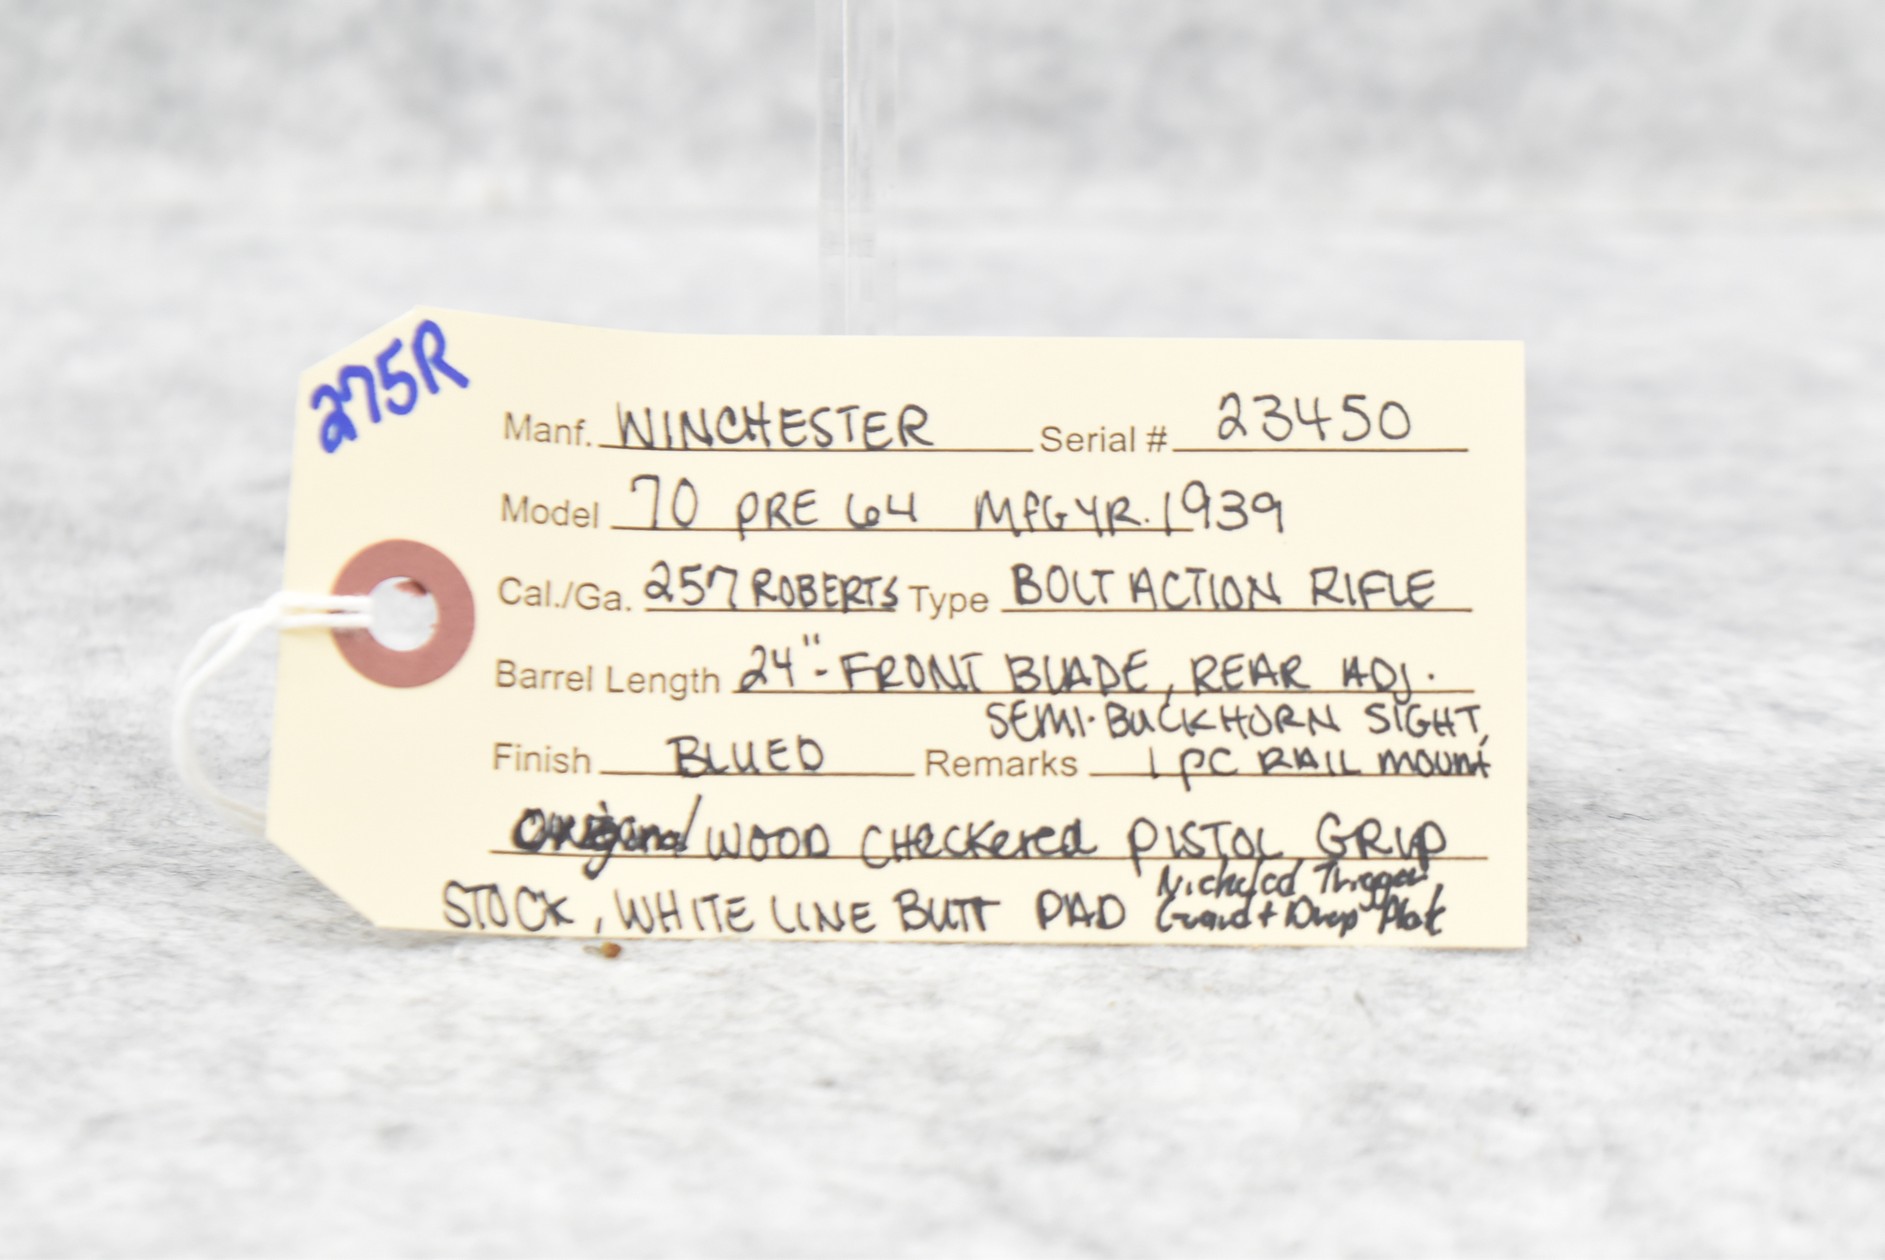 275R
Manf. WINCHESTER Serial # 23450
Model 70 PRE 64 MFG YR. 1939
Cal./Ga. 257 ROBERTS Type BOLT ACTION RIFLE
Barrel Length 24" - FRONT BLADE, REAR ADJ.
SEMI-BUCKHORN SIGHT,
Finish BLUED Remarks 1 PC RAIL MOUNT
Original WOOD CHECKERED PISTOL GRIP
Nickeled Trigger
STOCK, WHITE LINE BUTT PAD Guard + Drop Plate